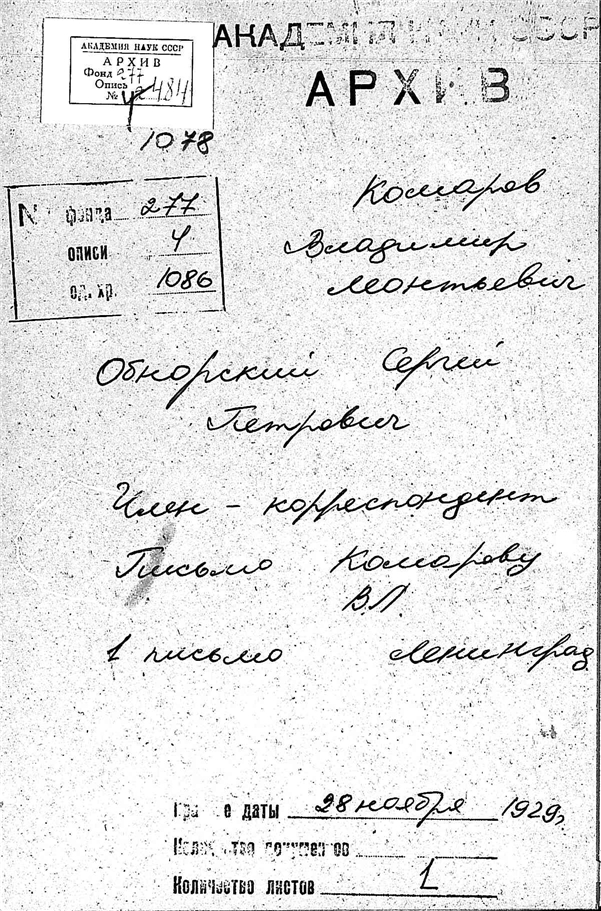 АКАДЕМИЯ НАУК СССР
АРХИВ
АКАДЕМИЯ НАУК СССР
АРХИВ
Фонд 277
Опись 4
№ 484
1078
№ фонда 277
описи 4
ед. хр. 1086
Комаров
Владимир
Леонтьевич
Обнорский Сергей
Петрович
Член - корреспондент
Письмо Комарову
В.Л.
1 письмо Ленинград
Кра е даты 28 ноября 1929г.
Количество документов
Количество листов 1